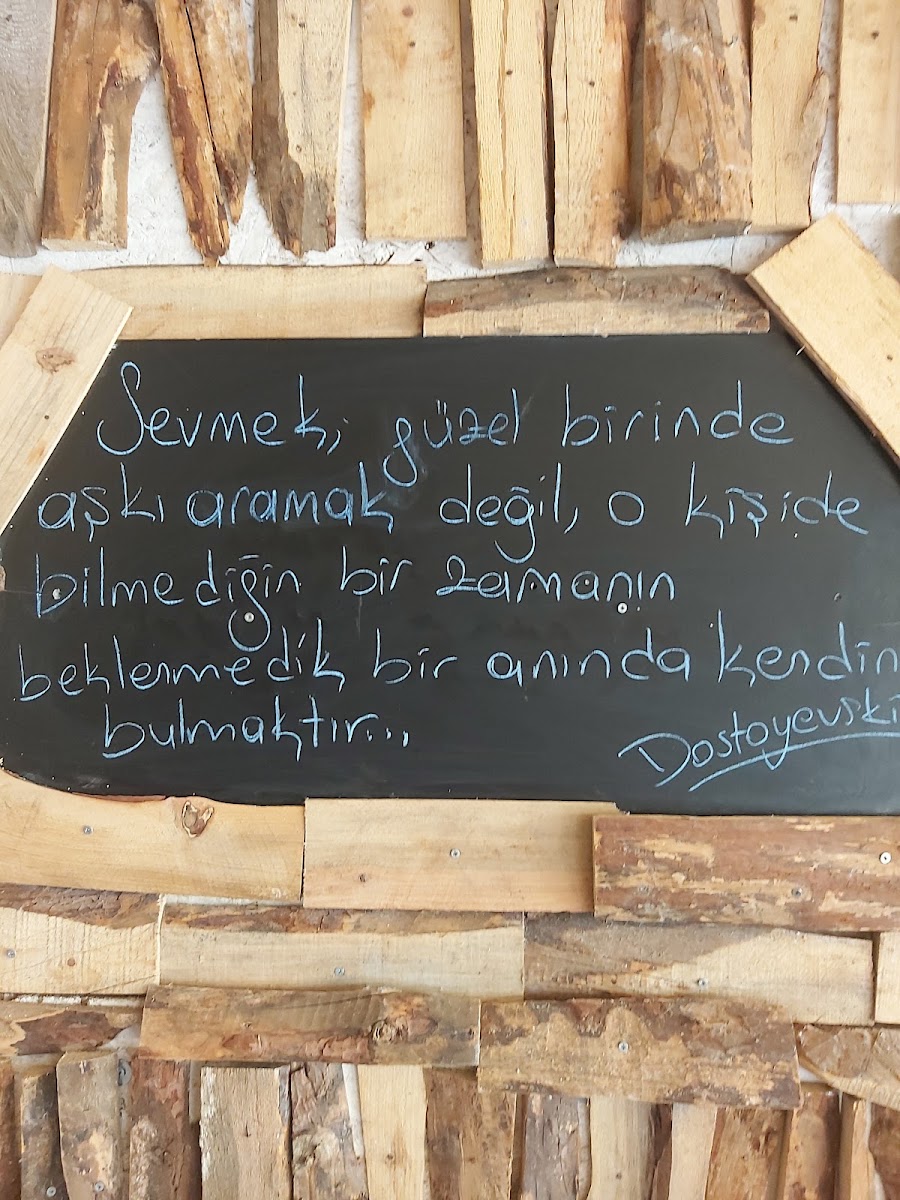 Sevmek, güzel birinde
aşkı aramak değil, o kişide
bilmediğin bir zamanın
beklenmedik bir anında kendin
bulmaktır...
Dostoyevski